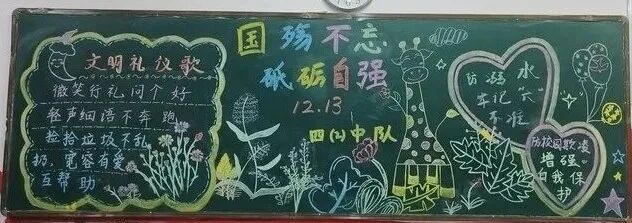 文明礼仪歌
微笑行礼问个好
轻声细语不奔跑
捡拾垃圾不乱
扔,宽容有爱
互帮助
国殇不忘
砥砺自强
12.13
四(2)中队
防溺水
牢记"六
不准
防校园欺凌
增强
自我保
护